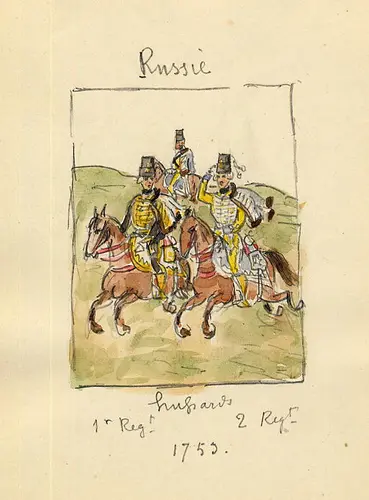 Russie
hussards
1r Regt 2 Regt
1753.